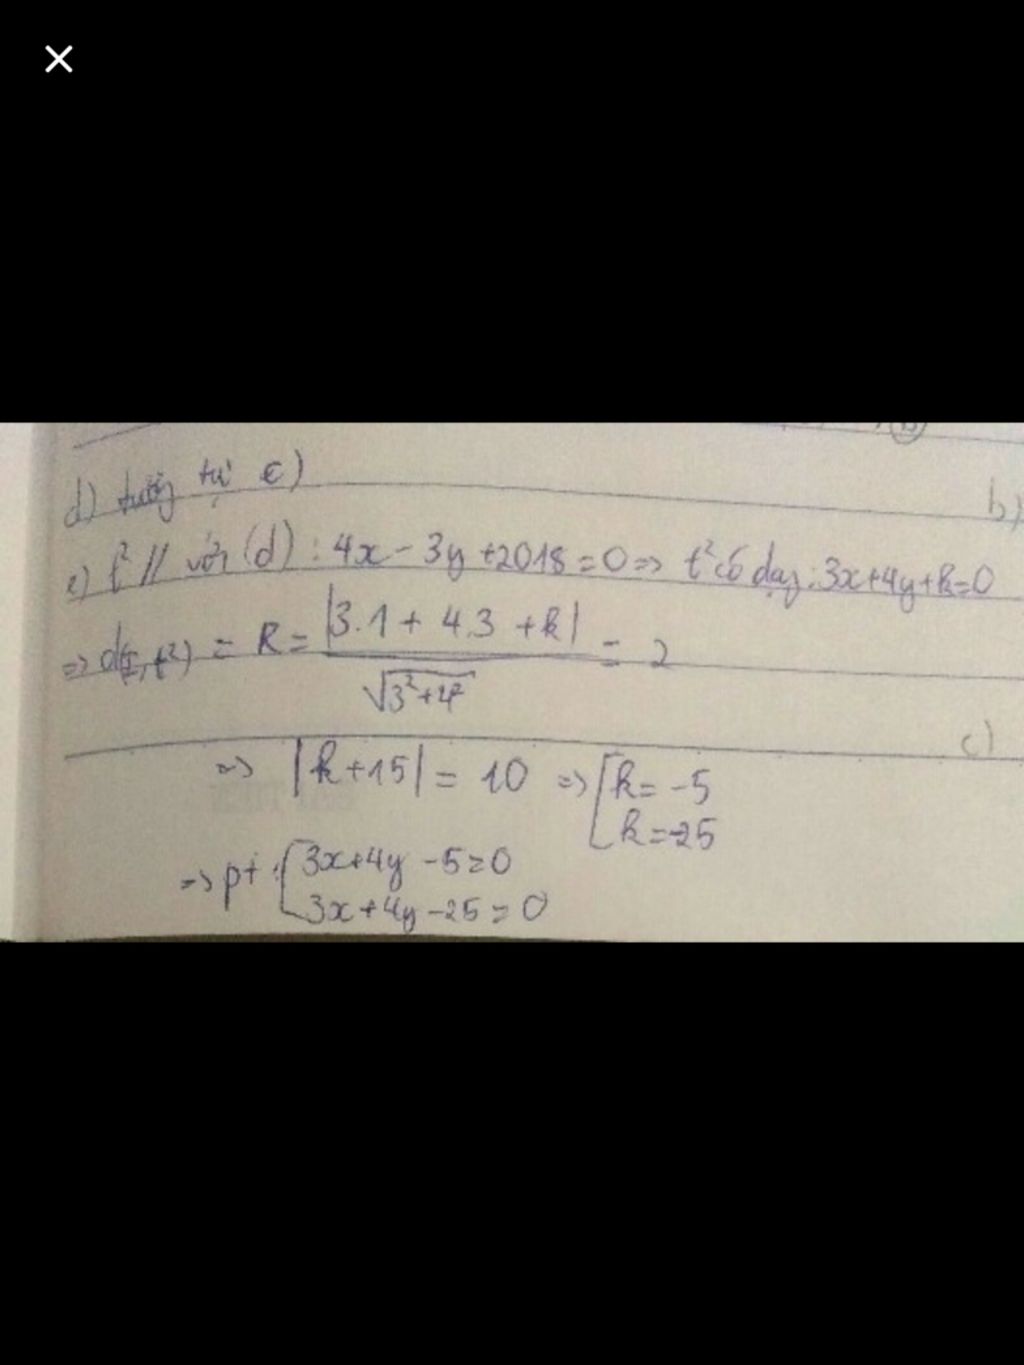 d) tương tự c)
b)
e) t² // với (d) : 4x - 3y + 2018 = 0 => t² có dạng : 3x+4y+k=0
=> d(I, t²) = R = |3.1 + 4.3 + k| / √3²+4² = 2
c)
=> |k+15| = 10 => [k = -5
k = -25
=> pt : [3x+4y -5 = 0
3x + 4y - 25 = 0